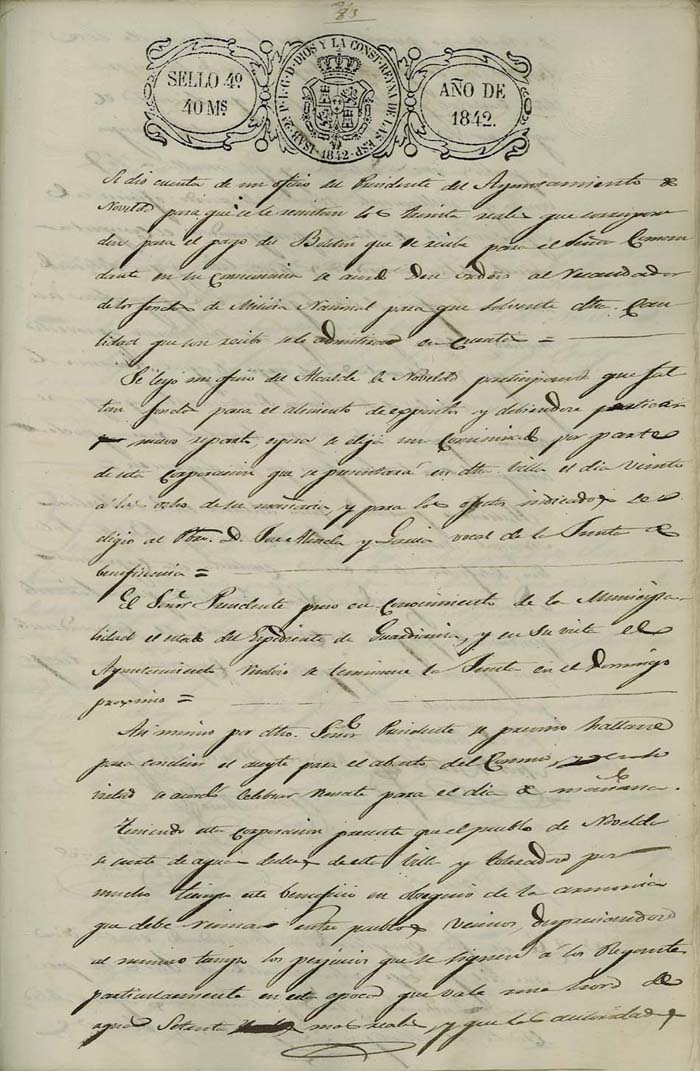 83
SELLO 4º
40 Ms
ISAB. 2ª P. L. G. D. DIOS Y LA CONST. REYNA DE LAS ESP. 1842
AÑO DE
1842.
Se dio cuenta de un oficio del Presidente del Ayuntamiento de
Novelda para que se le remitan los treinta reales que correspon
den para el pago del Boletin que se recibe para el Señor Coman
dante en su consecuencia se acordó dar orden al Recaudador
de los fondos de Milicia Nacional para que solvente dha. Can
tidad que con recibo se le admitirá en cuenta =
Se leyó un oficio del Alcalde de Novelda participando que fal
tan fondos para el alimento de espósitos y debiendose practicar
nuevo reparto espera se elija un Comisionado por parte
de esta Corporacion que se presentará en dha Villa el dia veinte
á las ocho de su mañana, y para los efectos indicados se
eligio al Pbro. D. Jose y Garcia vocal de la Junta de
beneficencia =
El Señor Presidente puso en conocimiento de la Municipa
lidad el estado del Espediente de y en su vista el
Ayuntamiento se la Junta en el Domingo
proximo =
Asi mismo por dho. Señor Presidente se previno hallarse
para concluir el aceyte para el abasto del Comun, y en su
virtud se acordó celebrar Remate para el dia de mañana.
Teniendo esta Corporacion presente que el pueblo de Novelda
se surte de aguas dulces de esta Villa y toleradose por
mucho tiempo este beneficio en obsequio de la armonia
que debe reinar entre pueblos vecinos,
al mismo tiempo los perjuicios que se siguen á los Regantes
particularmente en esta epoca que vale una hora de
agua Setenta mas reales, y que las autoridades